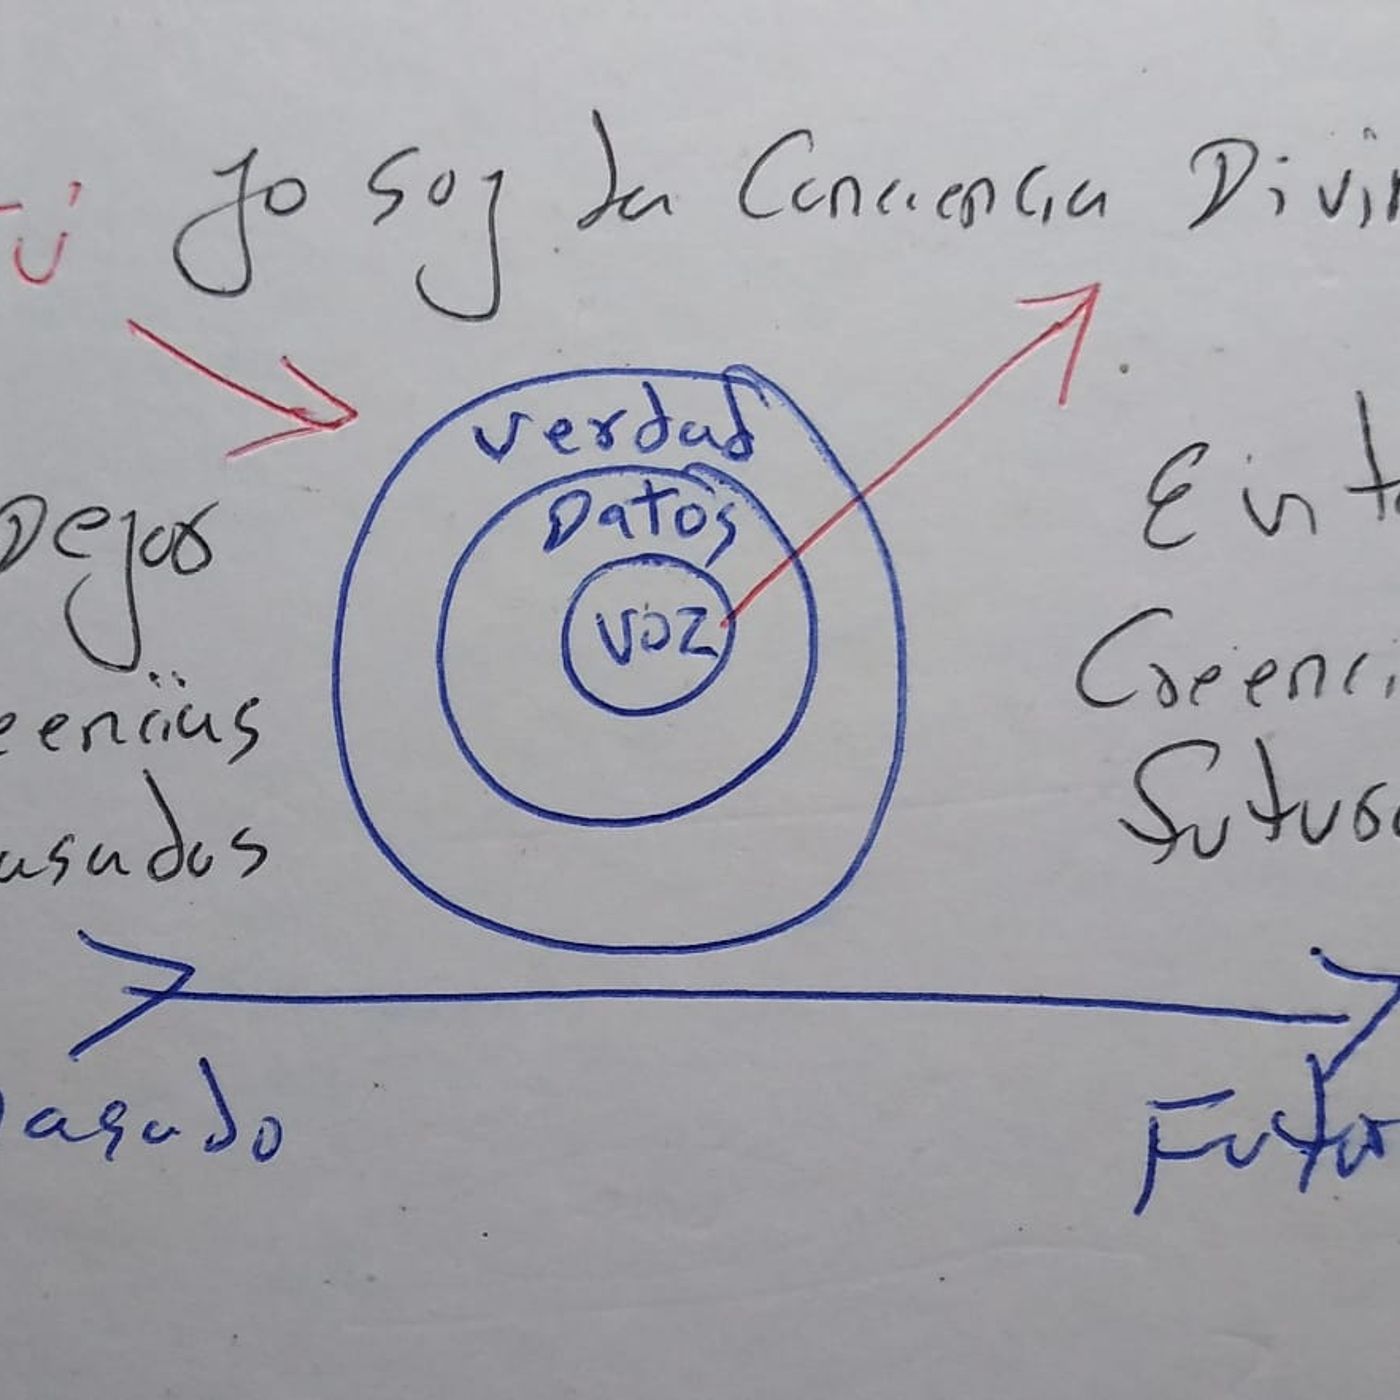 Tú Yo soy la Conciencia Divin
verdad
Datos
voz
Dejar
eencias
asados
Creenci
futura
Pasado
Futur